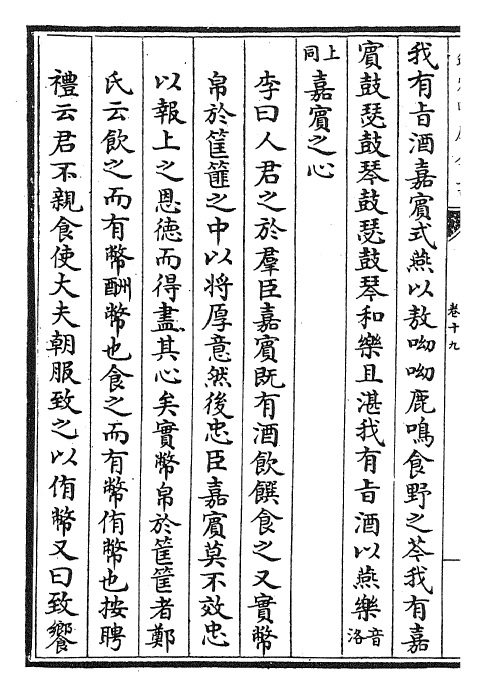 卷十九
我有㫖酒嘉賓式燕以敖呦呦鹿鳴食野之芩我有嘉
賓鼓瑟鼓琴鼓瑟鼓琴和樂且湛我有㫖酒以燕樂音洛
上同嘉賓之心
李曰人君之於羣臣嘉賓既有酒飲饌食之又實幣
帛於筐篚之中以将厚意然後忠臣嘉賓莫不效忠
以報上之恩德而得盡其心矣實幣帛於筐篚者鄭
氏云飲之而有幣酬幣也食之而有幣侑幣也按聘
禮云君不親食使大夫朝服致之以侑幣又曰致饗